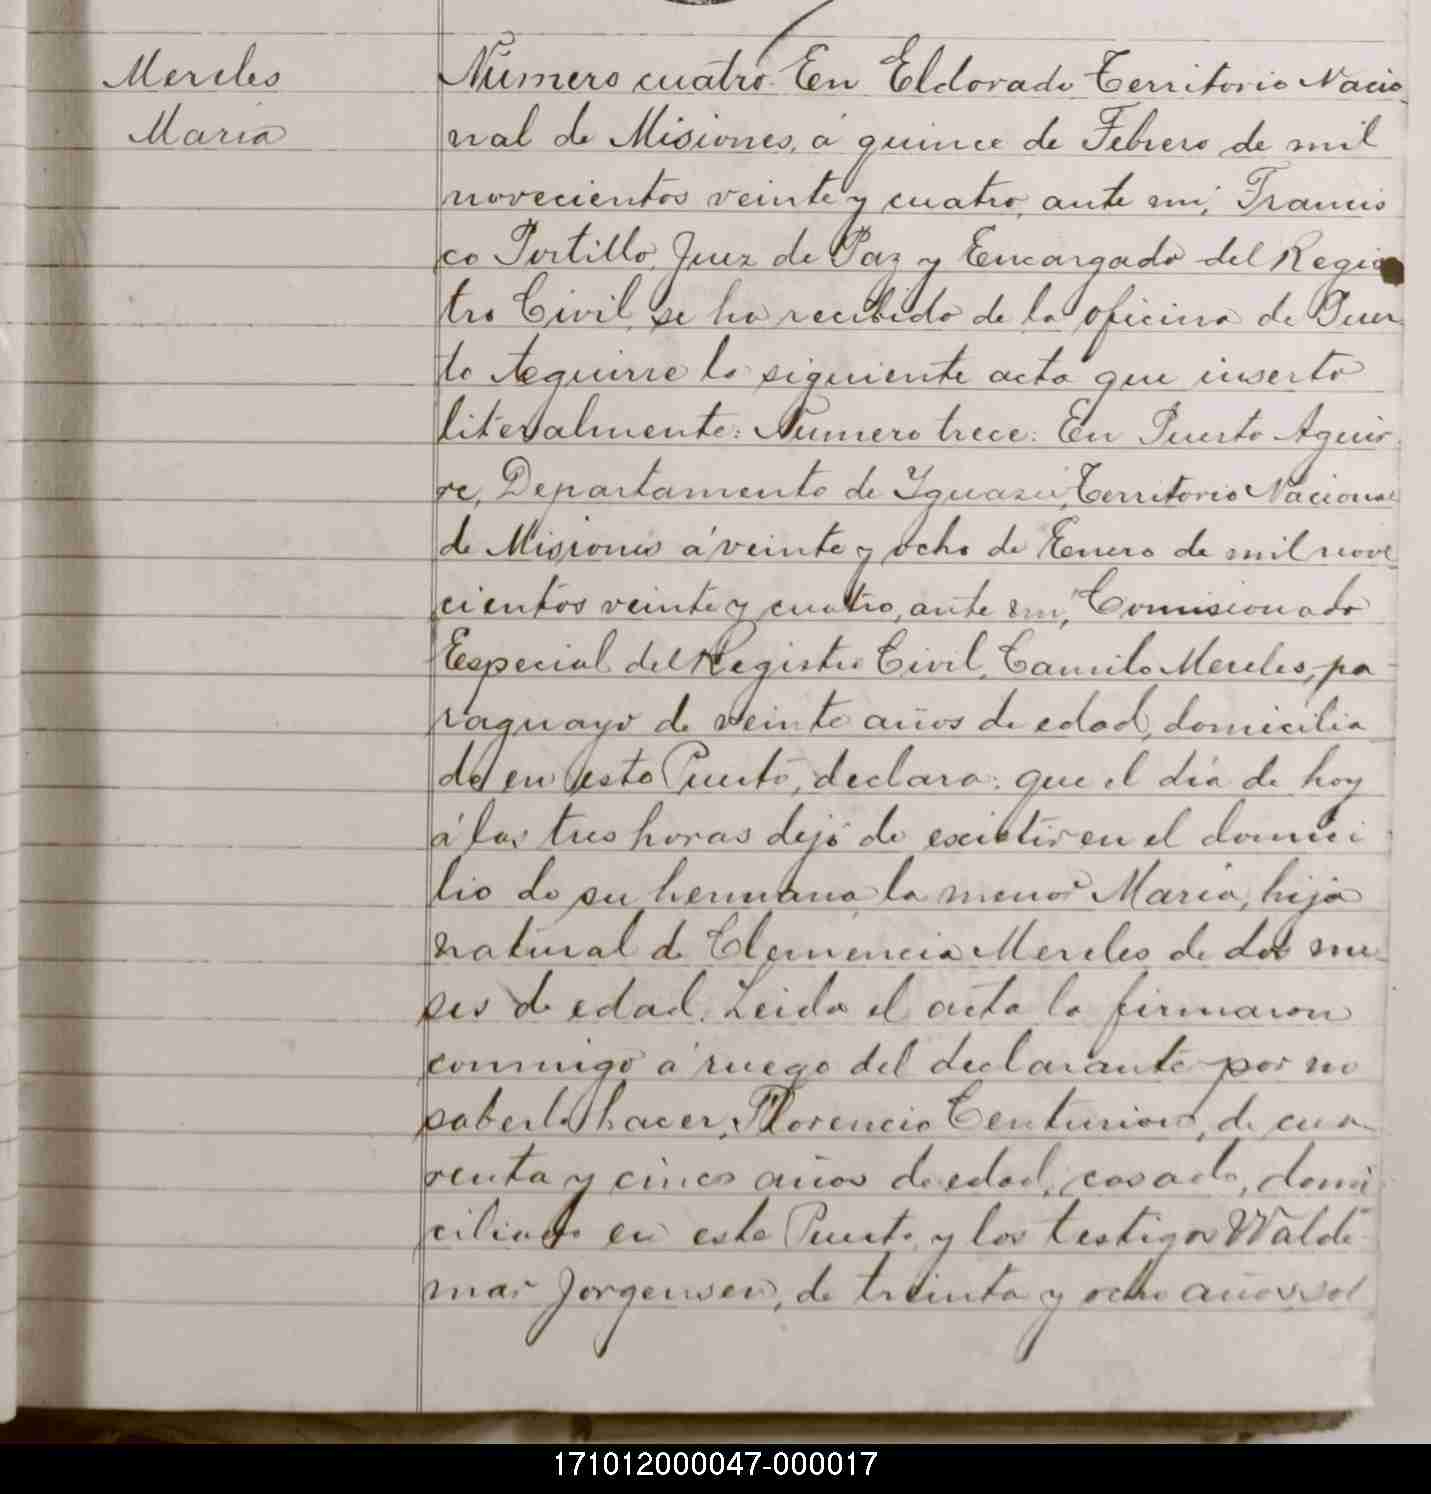 Mereles
Maria
Número cuatro. En Eldorado Territorio Nacio
nal de Misiones, á quince de Febrero de mil
novecientos veinte y cuatro, ante mi, Francis
co Portillo, Juez de Paz y Encargado del Regis
tro Civil, se ha recibido de la oficina de Puer
to Aguirre la siguiente acta que inserto
literalmente: Numero trece: En Puerto Aguir
re, Departamento de Yguazú, Territorio Nacional
de Misiones á veinte y ocho de Enero de mil nove
cientos veinte y cuatro, ante mi, Comisionado
Especial del Registro Civil, Camilo Mereles, pa
raguayo de veinte años de edad, domicilia
do en este Puerto, declara: que el día de hoy
á las tres horas dejó de existir en el domici
lio de su hermana la menor María, hija
natural de Clemencia Mereles de dos me
ses de edad. Leida el acta la firmaron
conmigo á ruego del declarante por no
saberlo hacer, Florencio Centurion, de cua
renta y cinco años de edad, casado, domi
ciliado en este Puerto y los testigos Walde
mar Jorgensen, de treinta y ocho años, sol
171012000047-000017